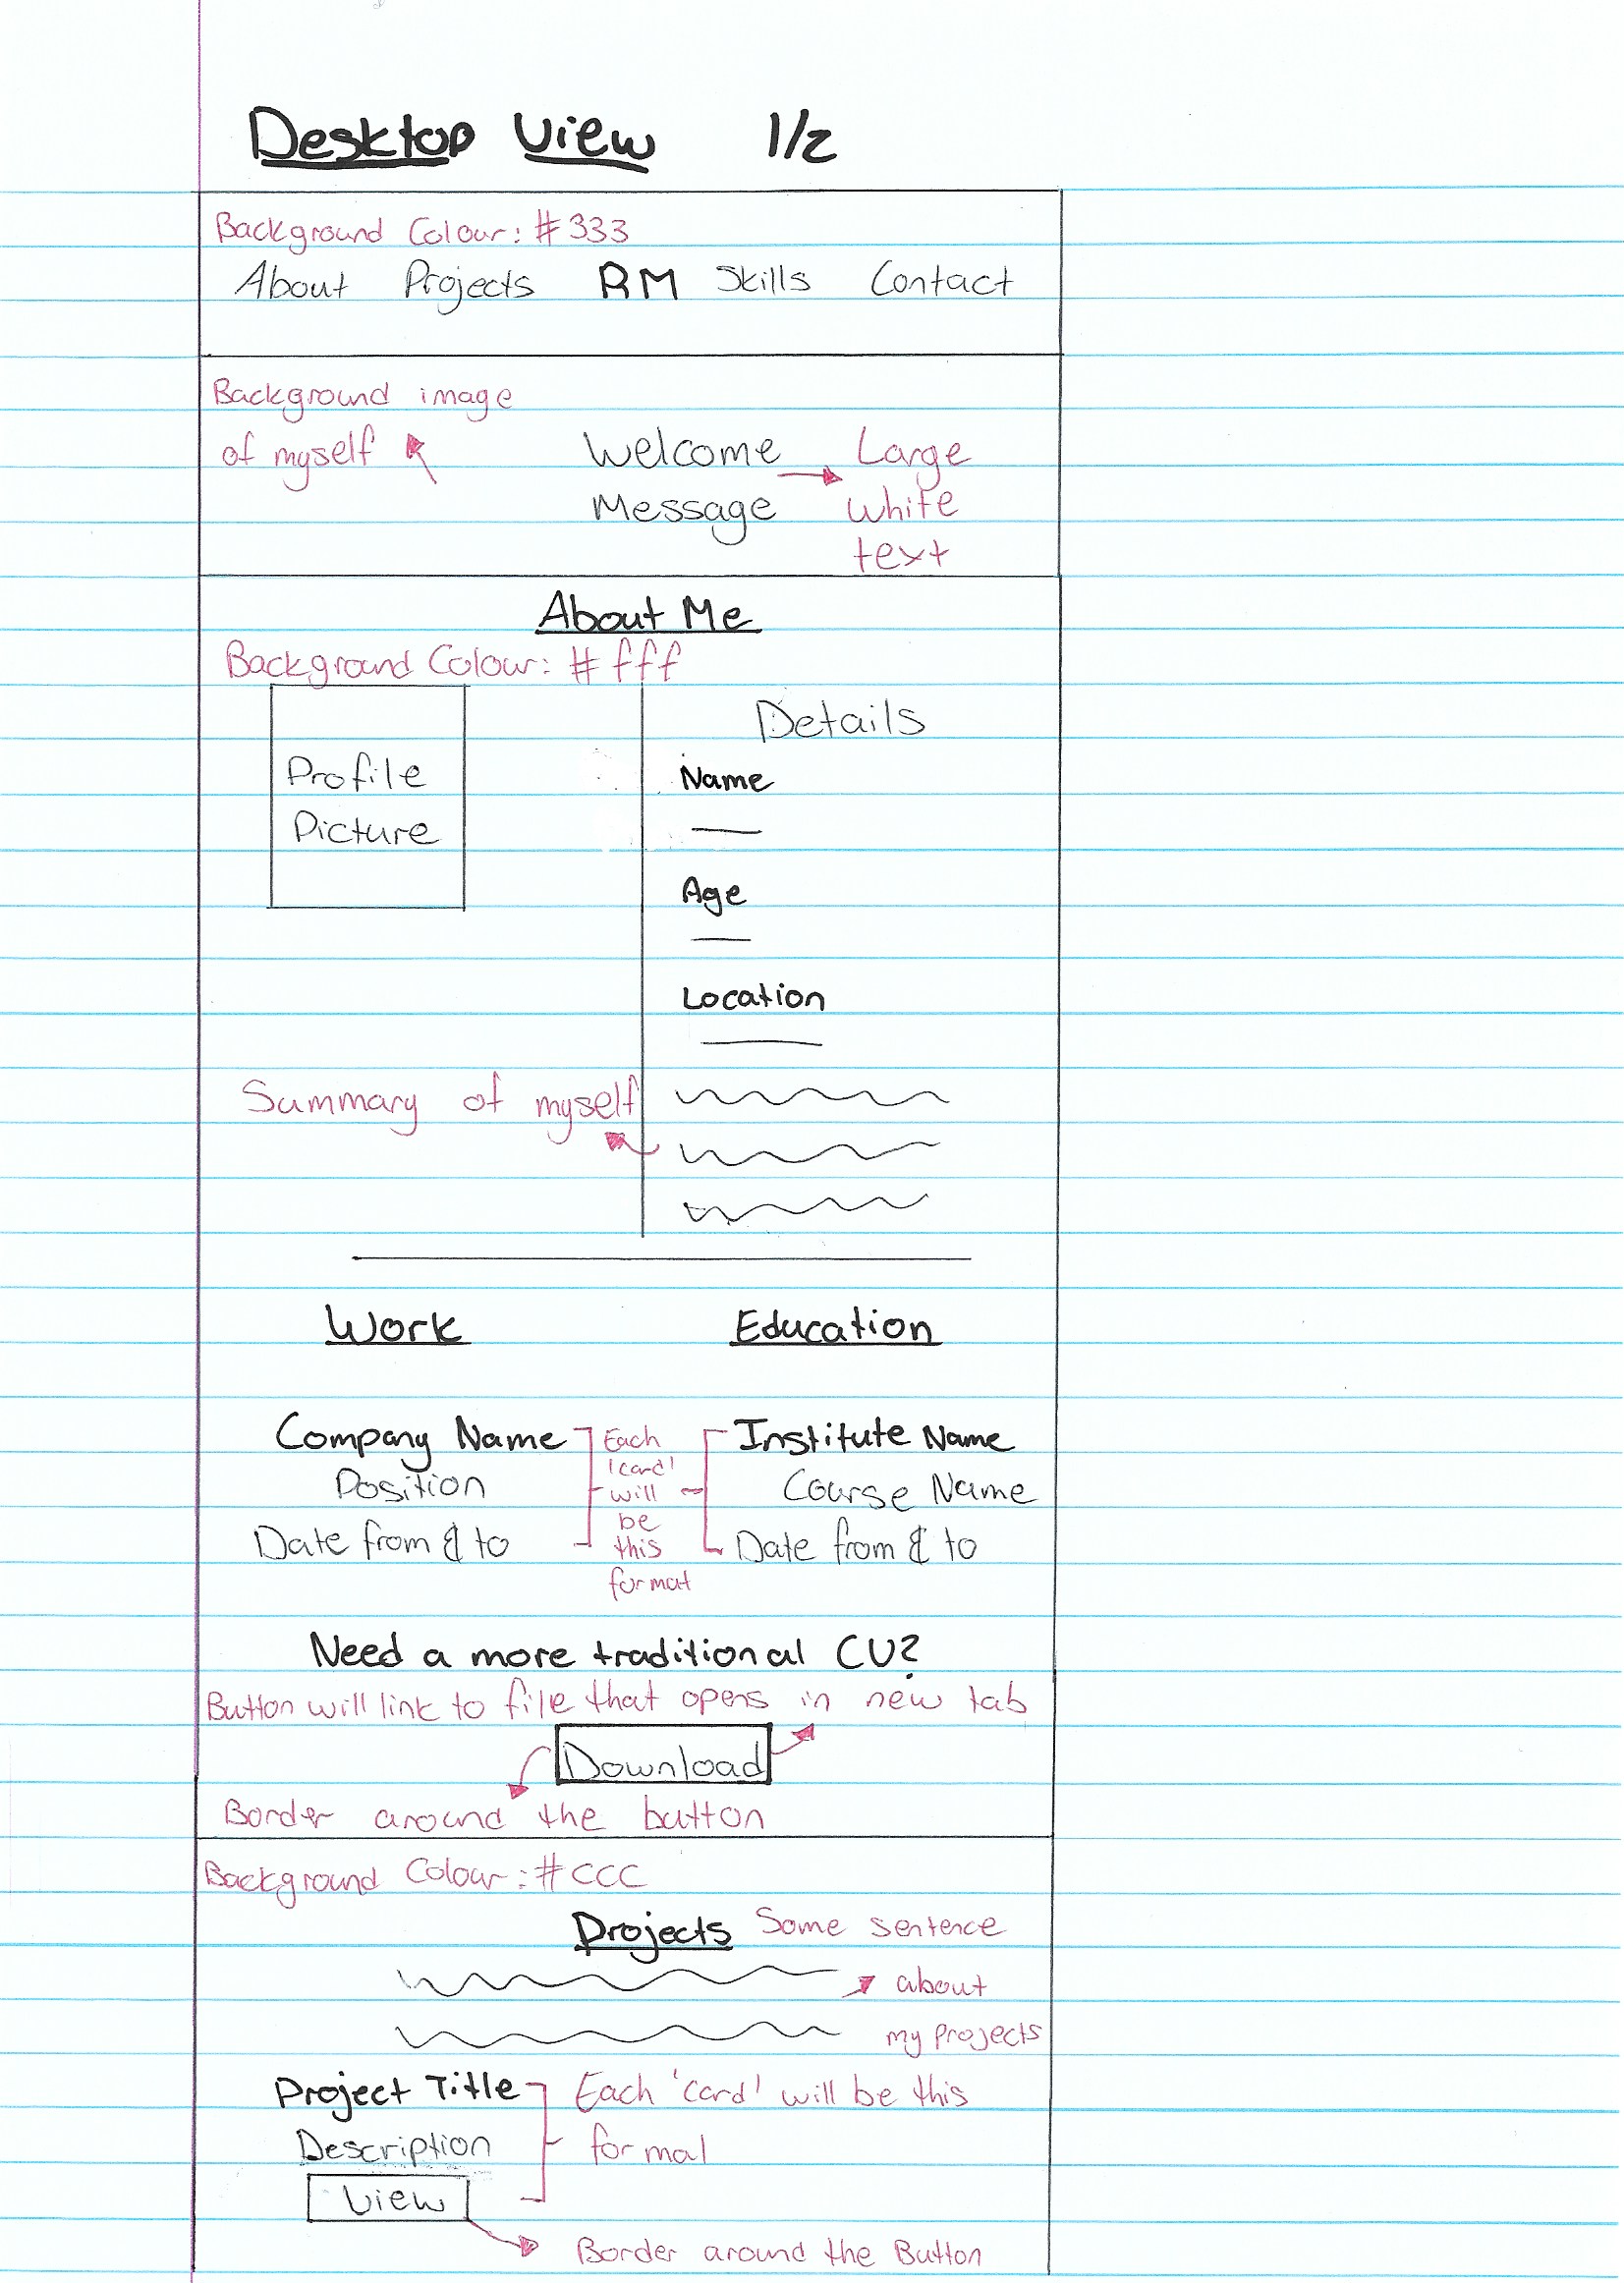 Desktop View 1/2
Background Colour: #333
About Projects RM Skills Contact
Background image
of myself
Welcome
Message
Large
white
text
About Me
Background Colour: #fff
Profile
Picture
Details
Name
Age
Location
Summary of myself
Work
Education
Company Name
Position
Date from & to
Each
'card'
will
be
this
format
Institute Name
Course Name
Date from & to
Need a more traditional CV?
Button will link to file that opens in new tab
Download
Border around the button
Background Colour: #CCC
Projects
Some sentence
about
my projects
Project Title
Description
View
Each 'card' will be this
formal
Border around the Button